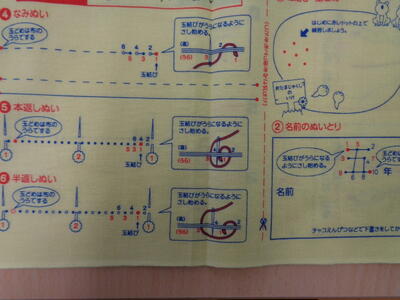 ④なみぬい
玉どめは布の
うらでする
玉結びがうらになるように
さし始める。
6 4 2
5 3 1
玉結び
(表)
(うら)
3 1
⑤本返しぬい
玉どめは布の
うらでする
玉結びがうらになるように
さし始める。
4 2
5 3 1
玉結び
(表)
(うら)
4 2
3 1
① ② ①
⑥半返しぬい
玉どめは布の
うらでする
玉結びがうらになるように
さし始める。
4 2
5 3 1
玉結び
(表)
(うら)
4 2
3 1
① ② ①
はじめに赤いドットの上で
練習しましょう。
おたまじゃくしの
いけ
②名前のぬいとり
玉結びがうらになるように
さし始める。
年
名前
チャコえんぴつなどで下書きをしてか